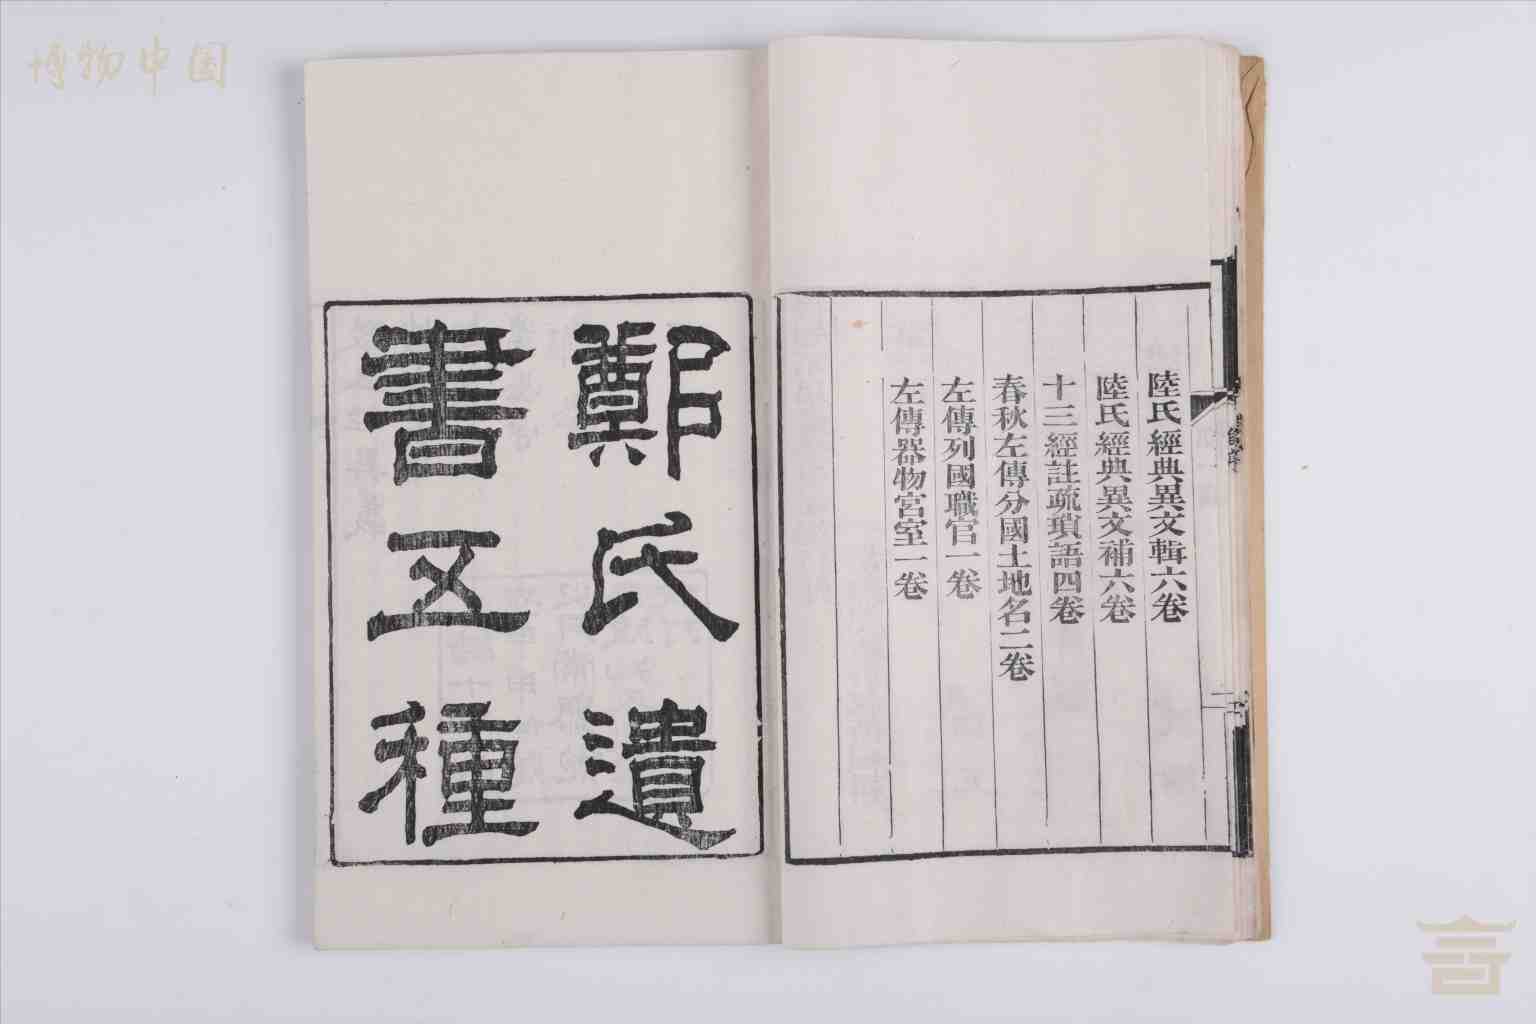 博物中国
陸氏經典異文輯六卷
陸氏經典異文補六卷
十三經註疏瑣語四卷
春秋左傳分國土地名二卷
左傳列國職官一卷
左傳器物宮室一卷
鄭氏遺
書五種